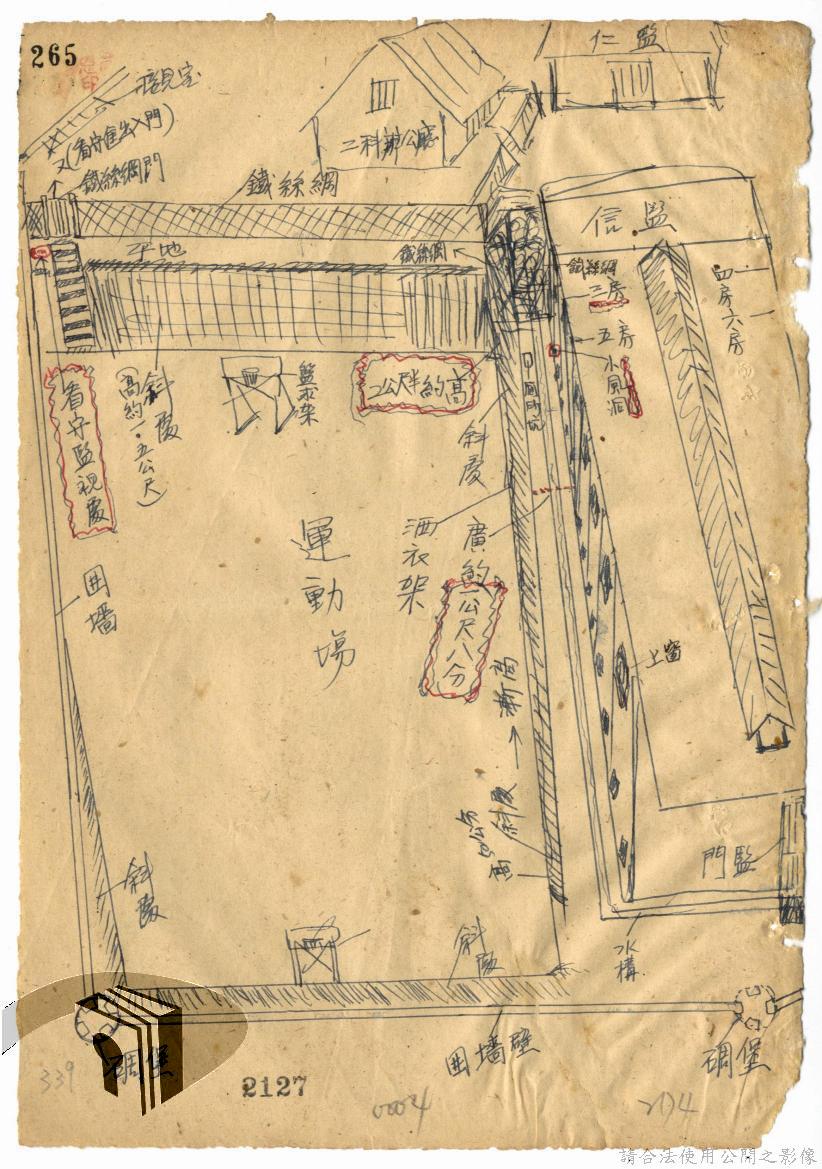 265
接見室
(看守進出入門)
鐵絲網門
鐵絲網
二科辦公廳
仁監
平地
鐵絲網
信監
鐵絲網
三房
五房
小風洞
四房六房
看守監視處
斜度
(高約一·五公尺)
籃球架
高約
2公尺半
斜度
廁所坑
運動場
洒衣架
廣約
一公尺八分
囲墻
上窗
高漸
斜度
斜度
斜度
門監
水構
碉堡
囲墻壁
碉堡
339
2127
0004
204
請合法使用公開之影像